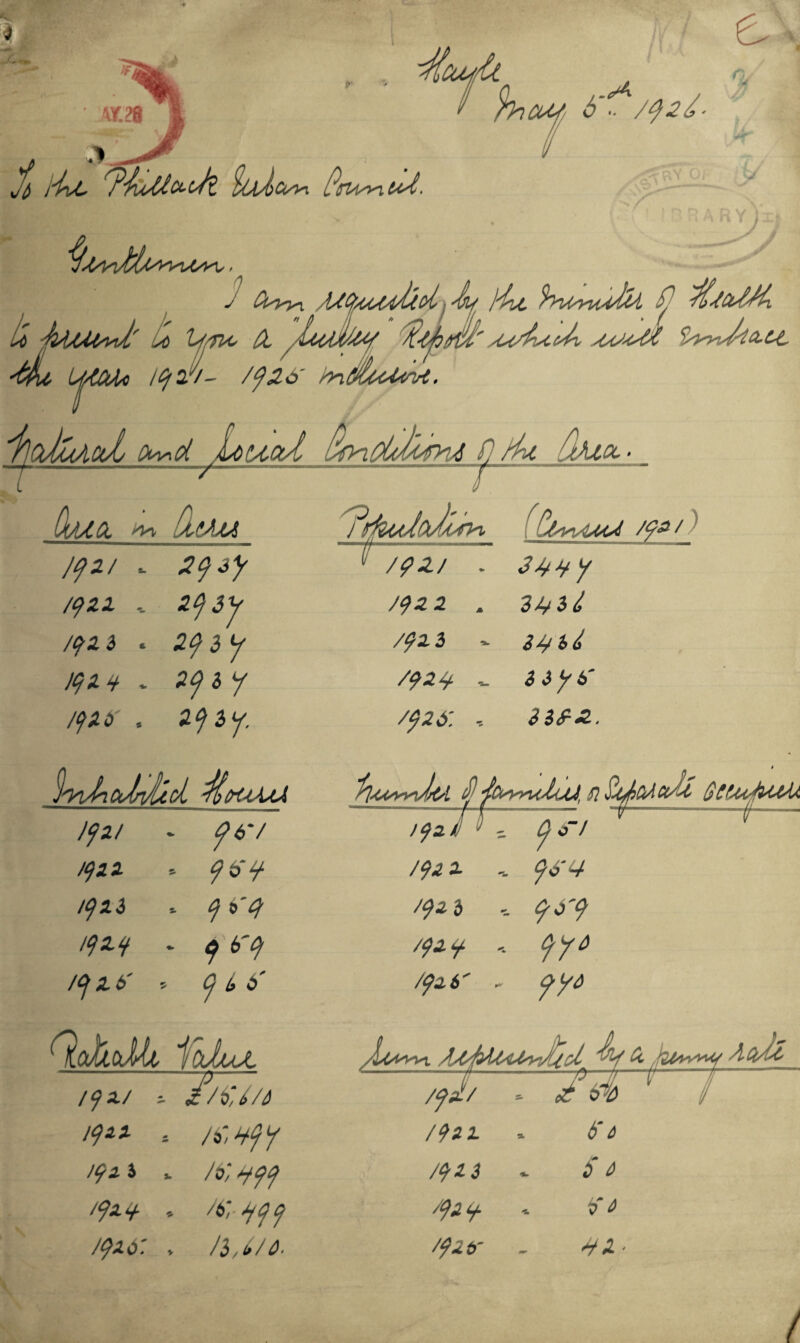 E
AY.28
Hayle
May 6th 1926.
To the Phillack Urban Council.
Gentlemen,
I am requested, by the Ministry of Health
to present to you a "Survey" Report which will embrace
the years 1921 - 1925 inclusive.
Natural and Social Conditions of the Area.
Area in Acres
1921 - 2937
1922 - 2937
1923 - 2937
1924 - 2937
1925 - 2937.
Population (Census 1921)
1921 - 3447
1922 - 3436
1923 - 3436
1924 - 3375
1925. - 3382.
Inhabited Houses
1921 - 951
1922 - 954
1923 - 959
1924 - 959
1925 - 965
Number of families, or Separate Occupiers
1921 - 951
1922 - 954
1923 - 959
1924 - 970
1925 - 970
Rateable Value
1921 - £15,610
1922 - 15,497
1923 - 15,499
1924 - 15,499
1925. - 13,610.
Sum represented by a penny rate
1921 - £50
1922 - 50
1923 - 50
1924 - 50
1925 - 42.